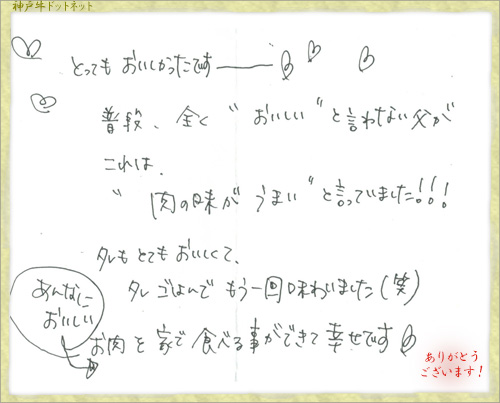 神戸牛ドットネット
とっても おいしかったです――
普段、全く "おいしい" と言わない父が
これは、
"肉の味が うまい" と言っていました!!!
タレもとてもおいしくて、
タレごはんで もう一回味わいました(笑)
あんなに
おいしい
お肉を家で食べる事ができて幸せです
ありがとう
ございます!